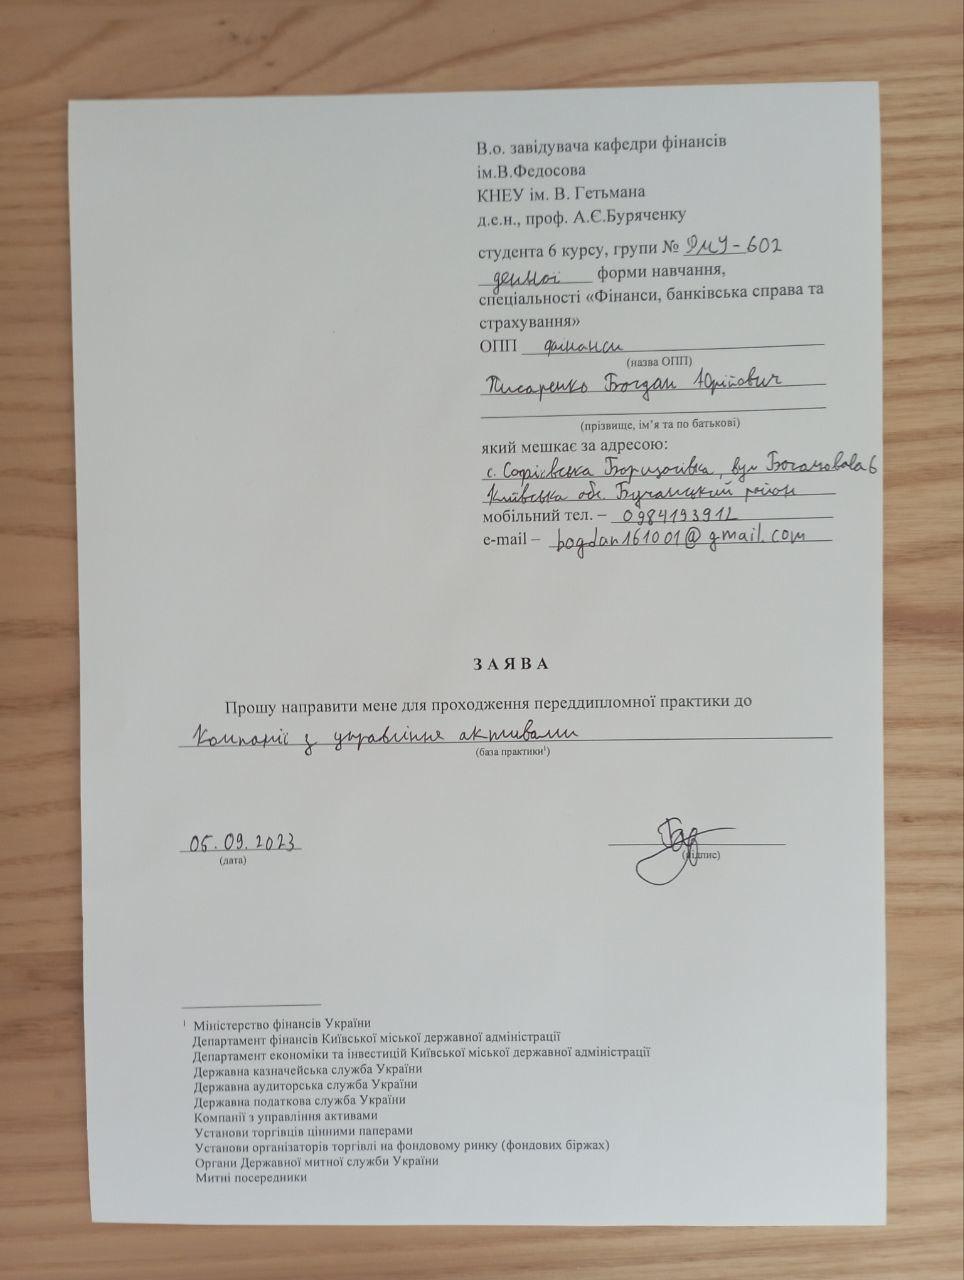 В.о. завідувача кафедри фінансів
ім.В.Федосова
КНЕУ ім. В. Гетьмана
д.е.н., проф. А.Є.Буряченку
студента 6 курсу, групи № ФМУ-602
денної форми навчання,
спеціальності «Фінанси, банківська справа та
страхування»
ОПП фінанси
(назва ОПП)
Писаренко Богдан Юрійович
(прізвище, ім’я та по батькові)
який мешкає за адресою:
с. Софієвська Борщагівка, вул 6
Київська обл. Бучанський район
мобільний тел. – 0984193912
e-mail – bogdan161001@gmail.com
З А Я В А
Прошу направити мене для проходження переддипломної практики до
Компанії з управління активами
(база практики¹)
05.09.2023
(дата)
(підпис)
¹ Міністерство фінансів України
Департамент фінансів Київської міської державної адміністрації
Департамент економіки та інвестицій Київської міської державної адміністрації
Державна казначейська служба України
Державна аудиторська служба України
Державна податкова служба України
Компанії з управління активами
Установи торгівців цінними паперами
Установи організаторів торгівлі на фондовому ринку (фондових біржах)
Органи Державної митної служби України
Митні посередники